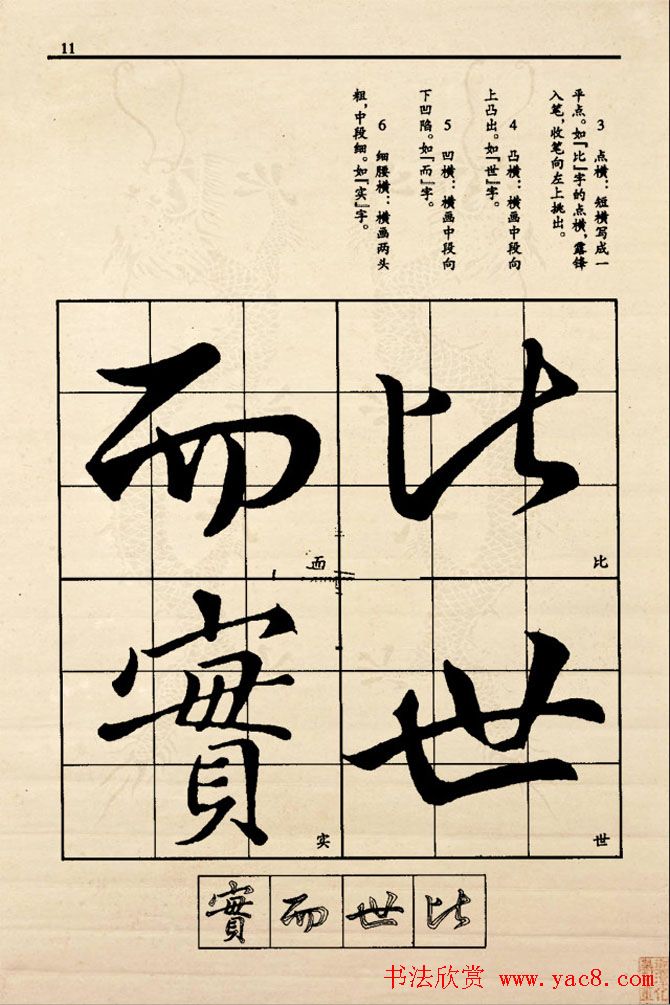 11
3 点横：短横写成一
平点。如『比』字的点横，露锋
入笔，收笔向左上挑出。
4 凸横：横画中段向
上凸出。如『世』字。
5 凹横：横画中段向
下凹陷。如『而』字。
6 细腰横：横画两头
粗，中段细。如『实』字。
比
比
世
世
而
而
實
实
比
世
而
實
书法欣赏 www.yac8.com